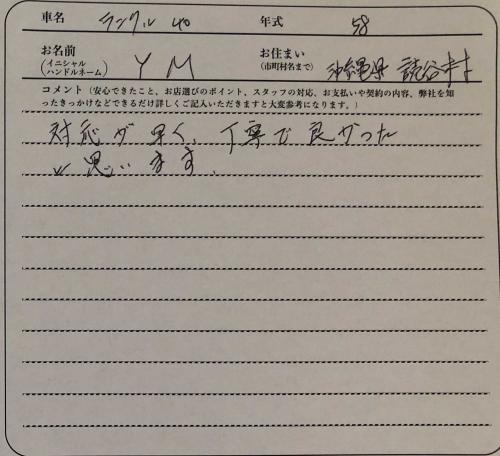 車名 ランクル 40 年式 58
お名前 (イニシャル ハンドルネーム) Y M お住まい (市町村名まで) 沖縄県 読谷村
コメント（安心できたこと、お店選びのポイント、スタッフの対応、お支払いや契約の内容、弊社を知
ったきっかけなどできるだけ詳しくご記入いただきますと大変参考になります。）
対応が早く、丁寧で良かった
と思います。